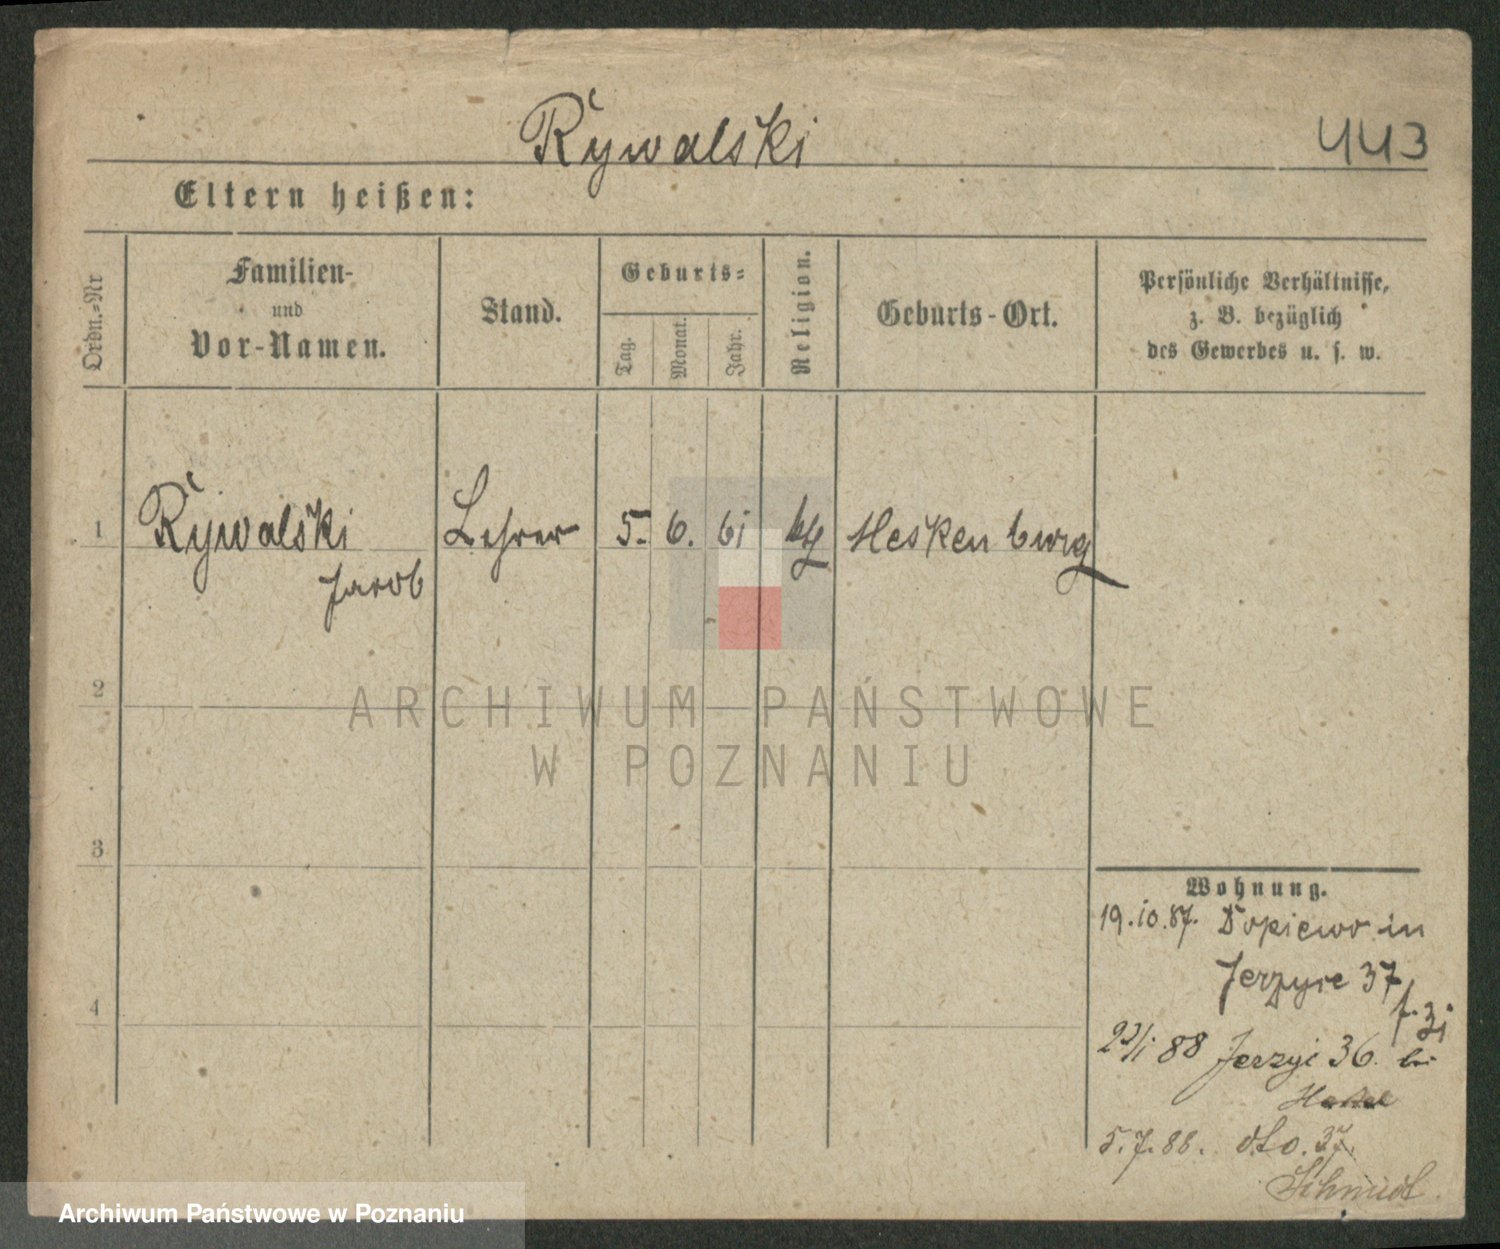 Rywalski
443
Eltern heißen:
Ordn.-Nr
Familien-
und
Vor-Namen.
Stand.
Geburts-
Tag.
Monat.
Jahr.
Religion.
Geburts-Ort.
Persönliche Verhältnisse,
z. B. bezüglich
des Gewerbes u. s. w.
1 Rywalski Lehrer 5. 6. 61
Jacob
2
3
4
Wohnung.
19.10.87. Dopiewo in
37
88 36. bei
5.7.88. dto. 37.
Schmidt
ARCHIWUM PAŃSTWOWE
W POZNANIU
Archiwum Państwowe w Poznaniu